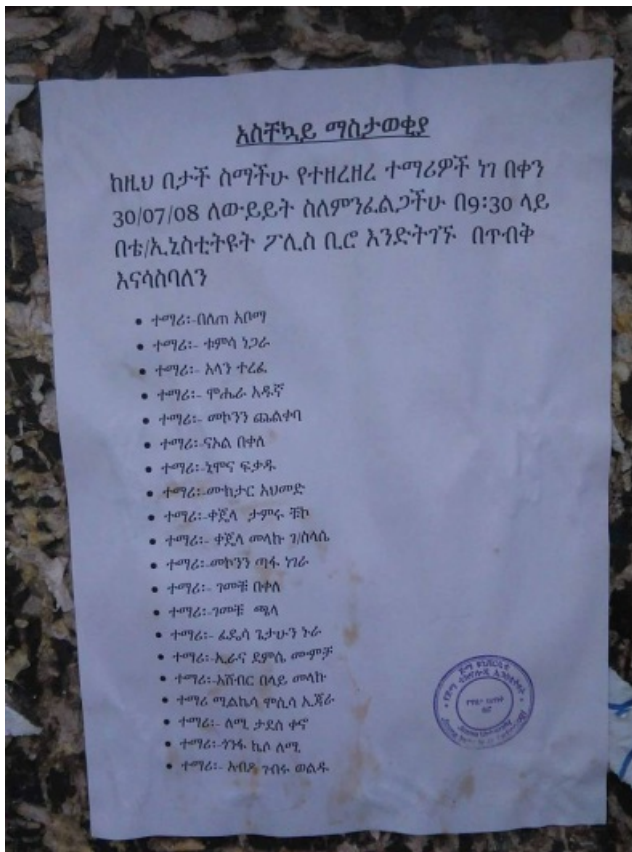 አስቸኳይ ማስታወቂያ
ከዚህ በታች ስማችሁ የተዘረዘረ ተማሪዎች ነገ በቀን
30/07/08 ለውይይት ስለምንፈልጋችሁ በ9፡30 ላይ
በቴ/ኢኒስቲትዩት ፖሊስ ቢሮ እንድትገኙ በጥብቅ
እናሳስባለን
• ተማሪ፡-በለጠ አቦማ
• ተማሪ፡- ቱምሳ ነጋራ
• ተማሪ፡- አላን ተረፈ
• ተማሪ፡- ሞሐራ አዱኛ
• ተማሪ፡- መኮንን ጨልቀባ
• ተማሪ፡-ናኦል በቀለ
• ተማሪ፡-ኒሞና ፍቃዱ
• ተማሪ፡-ሙክታር አህመድ
• ተማሪ፡-ቀጄላ ታምሩ ቹኮ
• ተማሪ፡- ቀጄላ መላኩ ገ/ስላሴ
• ተማሪ፡-መኮንን ጣፋ ነገራ
• ተማሪ፡- ገመቹ በቀለ
• ተማሪ፡-ገመቹ ጫላ
• ተማሪ፡- ፈዴሳ ጌታሁን ኑራ
• ተማሪ፡-ኢራና ደምሴ ሙምቻ
• ተማሪ፡-አሸብር በላይ መላኩ
• ተማሪ ሚልኬሳ ምሲሳ ኢጃራ
• ተማሪ፡- ለሚ ታደሰ ቀኖ
• ተማሪ፡-ጎንፋ ኪሶ ለሚ
• ተማሪ፡- አብዶ ገብሩ ወልዱ